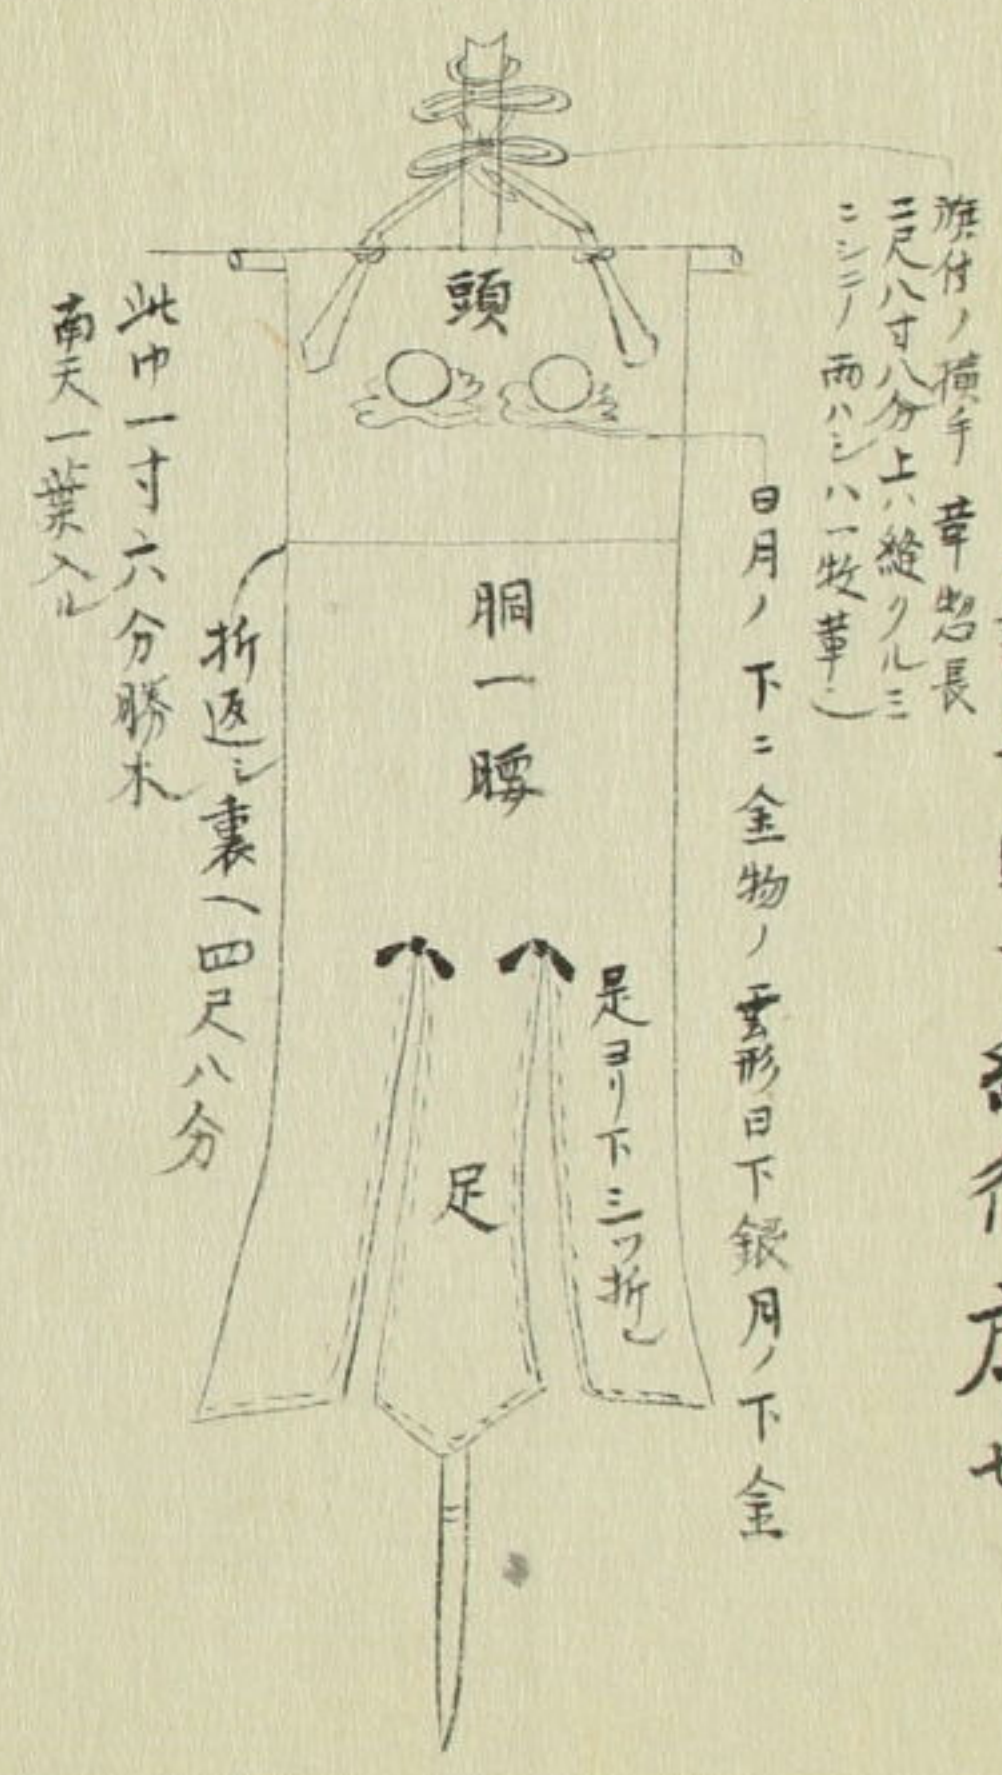 旗付ノ横手 革惣長
二尺八寸八分上ハ縫クルミ
ニシテノ両ハシハ一牧革也
日月ノ下ニ金物ノ雲形日下銀月ノ下金
頭
胴一腰
是ヨリ下三ツ折也
足
折返シ裏ヘ四尺八分
此巾一寸六分勝木
南天一葉入ル